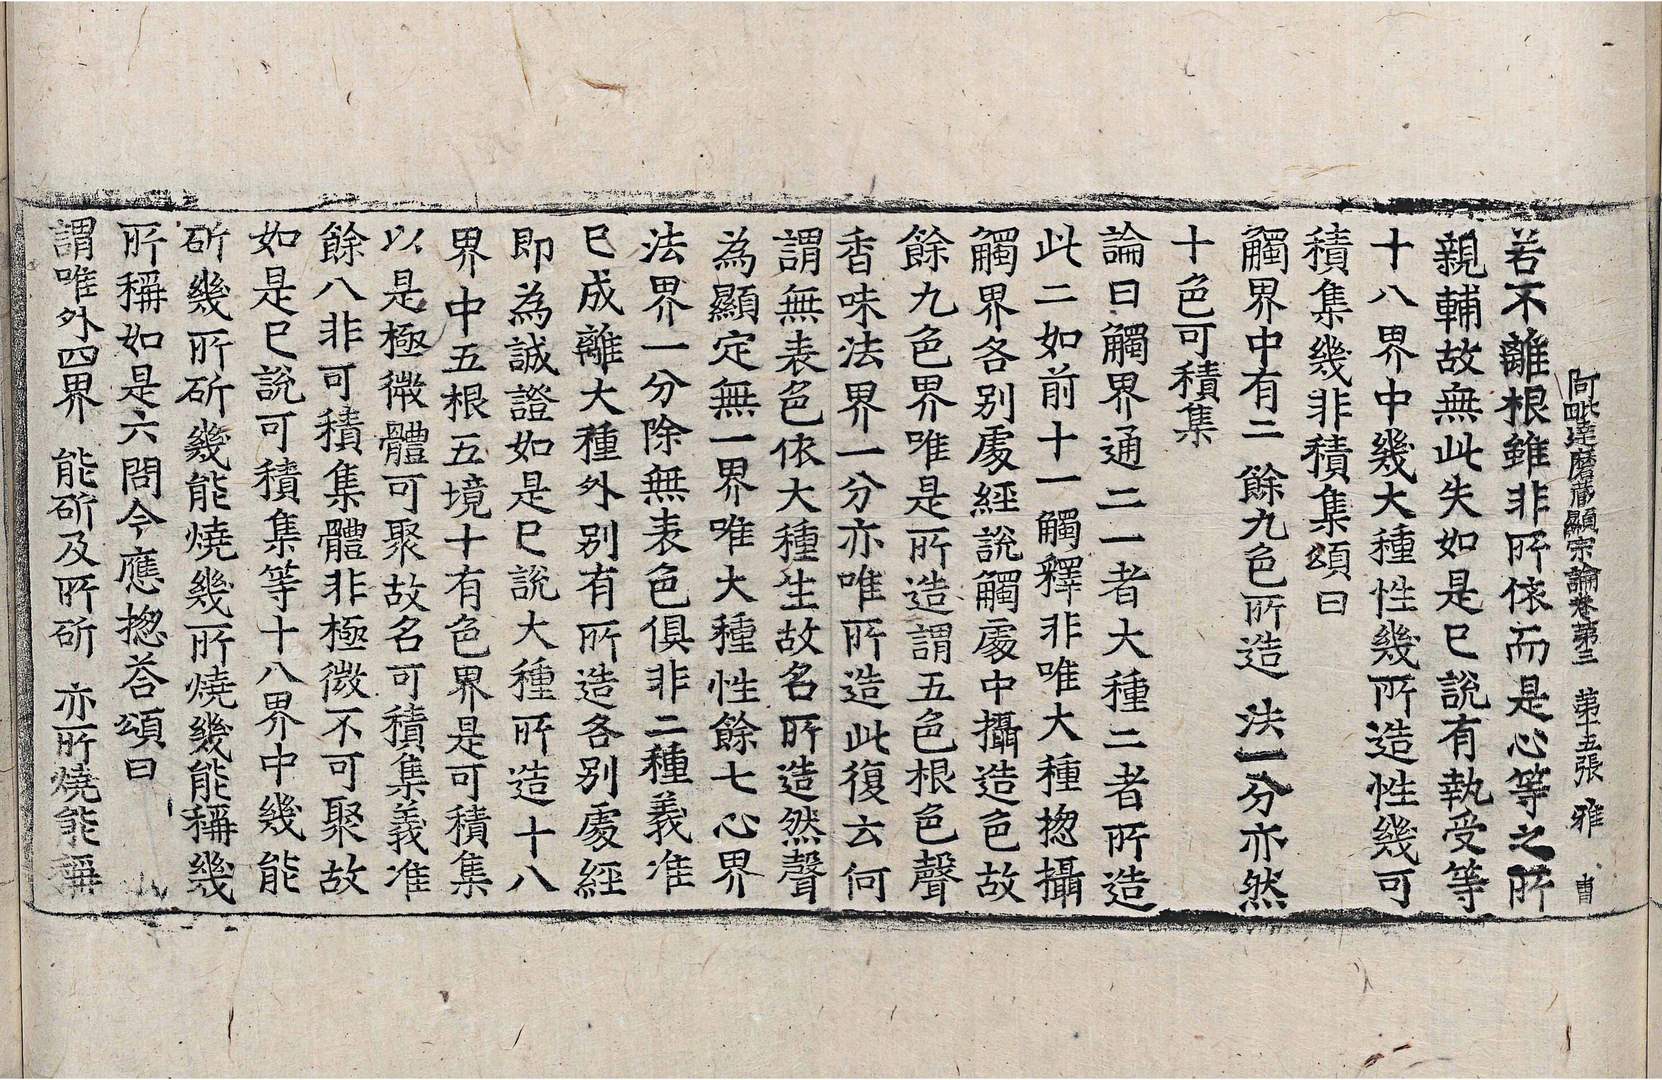 阿毗達磨藏顯宗論卷第三　第十五張　雅　曺
若不離根雖非所依而是心等之所
親輔故無此失如是已說有執受等
十八界中幾大種性幾所造性幾可
積集幾非積集頌曰
觸界中有二　餘九色所造　法一分亦然
十色可積集
論曰觸界通二一者大種二者所造
此二如前十一觸釋非唯大種揔攝
觸界各別處經說觸處中攝造色故
餘九色界唯是所造謂五色根色聲
香味法界一分亦唯所造此復云何
謂無表色依大種生故名所造然聲
為顯定無一界唯大種性餘七心界
法界一分除無表色俱非二種義准
已成離大種外別有所造各別處經
即為誠證如是已說大種所造十八
界中五根五境十有色界是可積集
以是極微體可聚故名可積集義准
餘八非可積集體非極微不可聚故
如是已說可積集等十八界中幾能
斫幾所斫幾能燒幾所燒幾能稱幾
所稱如是六問今應揔荅頌曰
謂唯外四界　能斫及所斫　亦所燒能稱